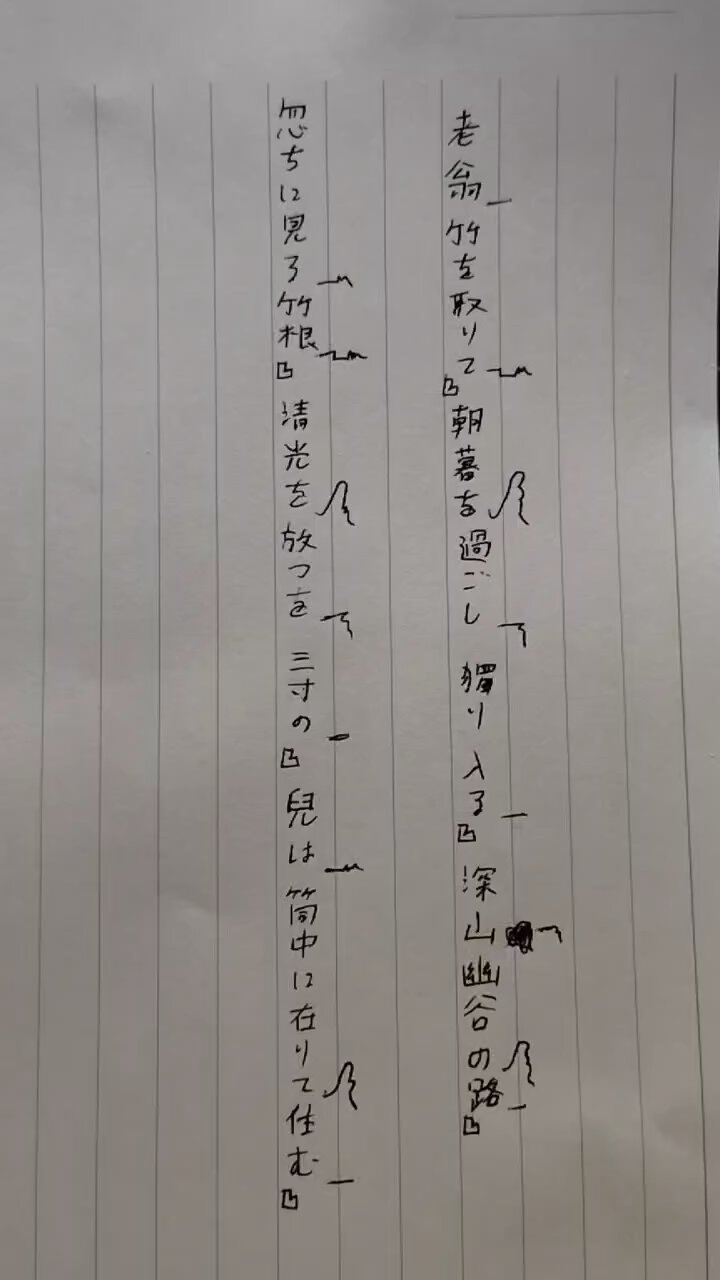 老翁竹を取りて朝暮を過ごし 獨り入る深山幽谷の路
忽ちに見る竹根清光を放つを 三寸の兒は筒中に在りて住む